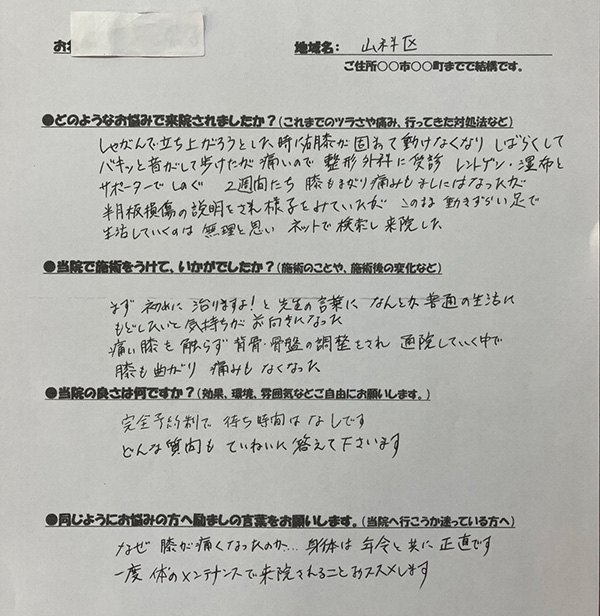 お名
地域名： 山科区
ご住所○○市○○町までで結構です。
●どのようなお悩みで来院されましたか？（これまでのツラさや痛み、行ってきた対処法など）
しゃがんで立ち上がろうとした時に右膝が固まって動けなくなり しばらくして
バキッと音がして歩けたが痛いので 整形外科に受診 レントゲン・湿布と
サポーターでしのぐ 2週間たち 膝もまがり痛みもましにはなったが
半月板損傷の説明をされ様子をみていたが このまま動きずらい足で
生活していくのは 無理と思い ネットで検索し来院した
●当院で施術をうけて、いかがでしたか？（施術のことや、施術後の変化など）
まず 初めに 治りますよ！と先生の言葉に なんとか普通の生活に
もどしたいと気持ちが 前向きになった
痛い膝も触らず 背骨・骨盤の調整をされ 通院していく中で
膝も曲がり 痛みもなくなった
●当院の良さは何ですか？（効果、環境、雰囲気などご自由にお願いします。）
完全予約制で 待ち時間はなしです
どんな質問も ていねいに答えて下さいます
●同じようにお悩みの方へ励ましの言葉をお願いします。（当院へ行こうか迷っている方へ）
なぜ 膝が痛くなったのか… 身体は 年令と共に正直です
一度 体のメンテナンスで来院されることおススメします